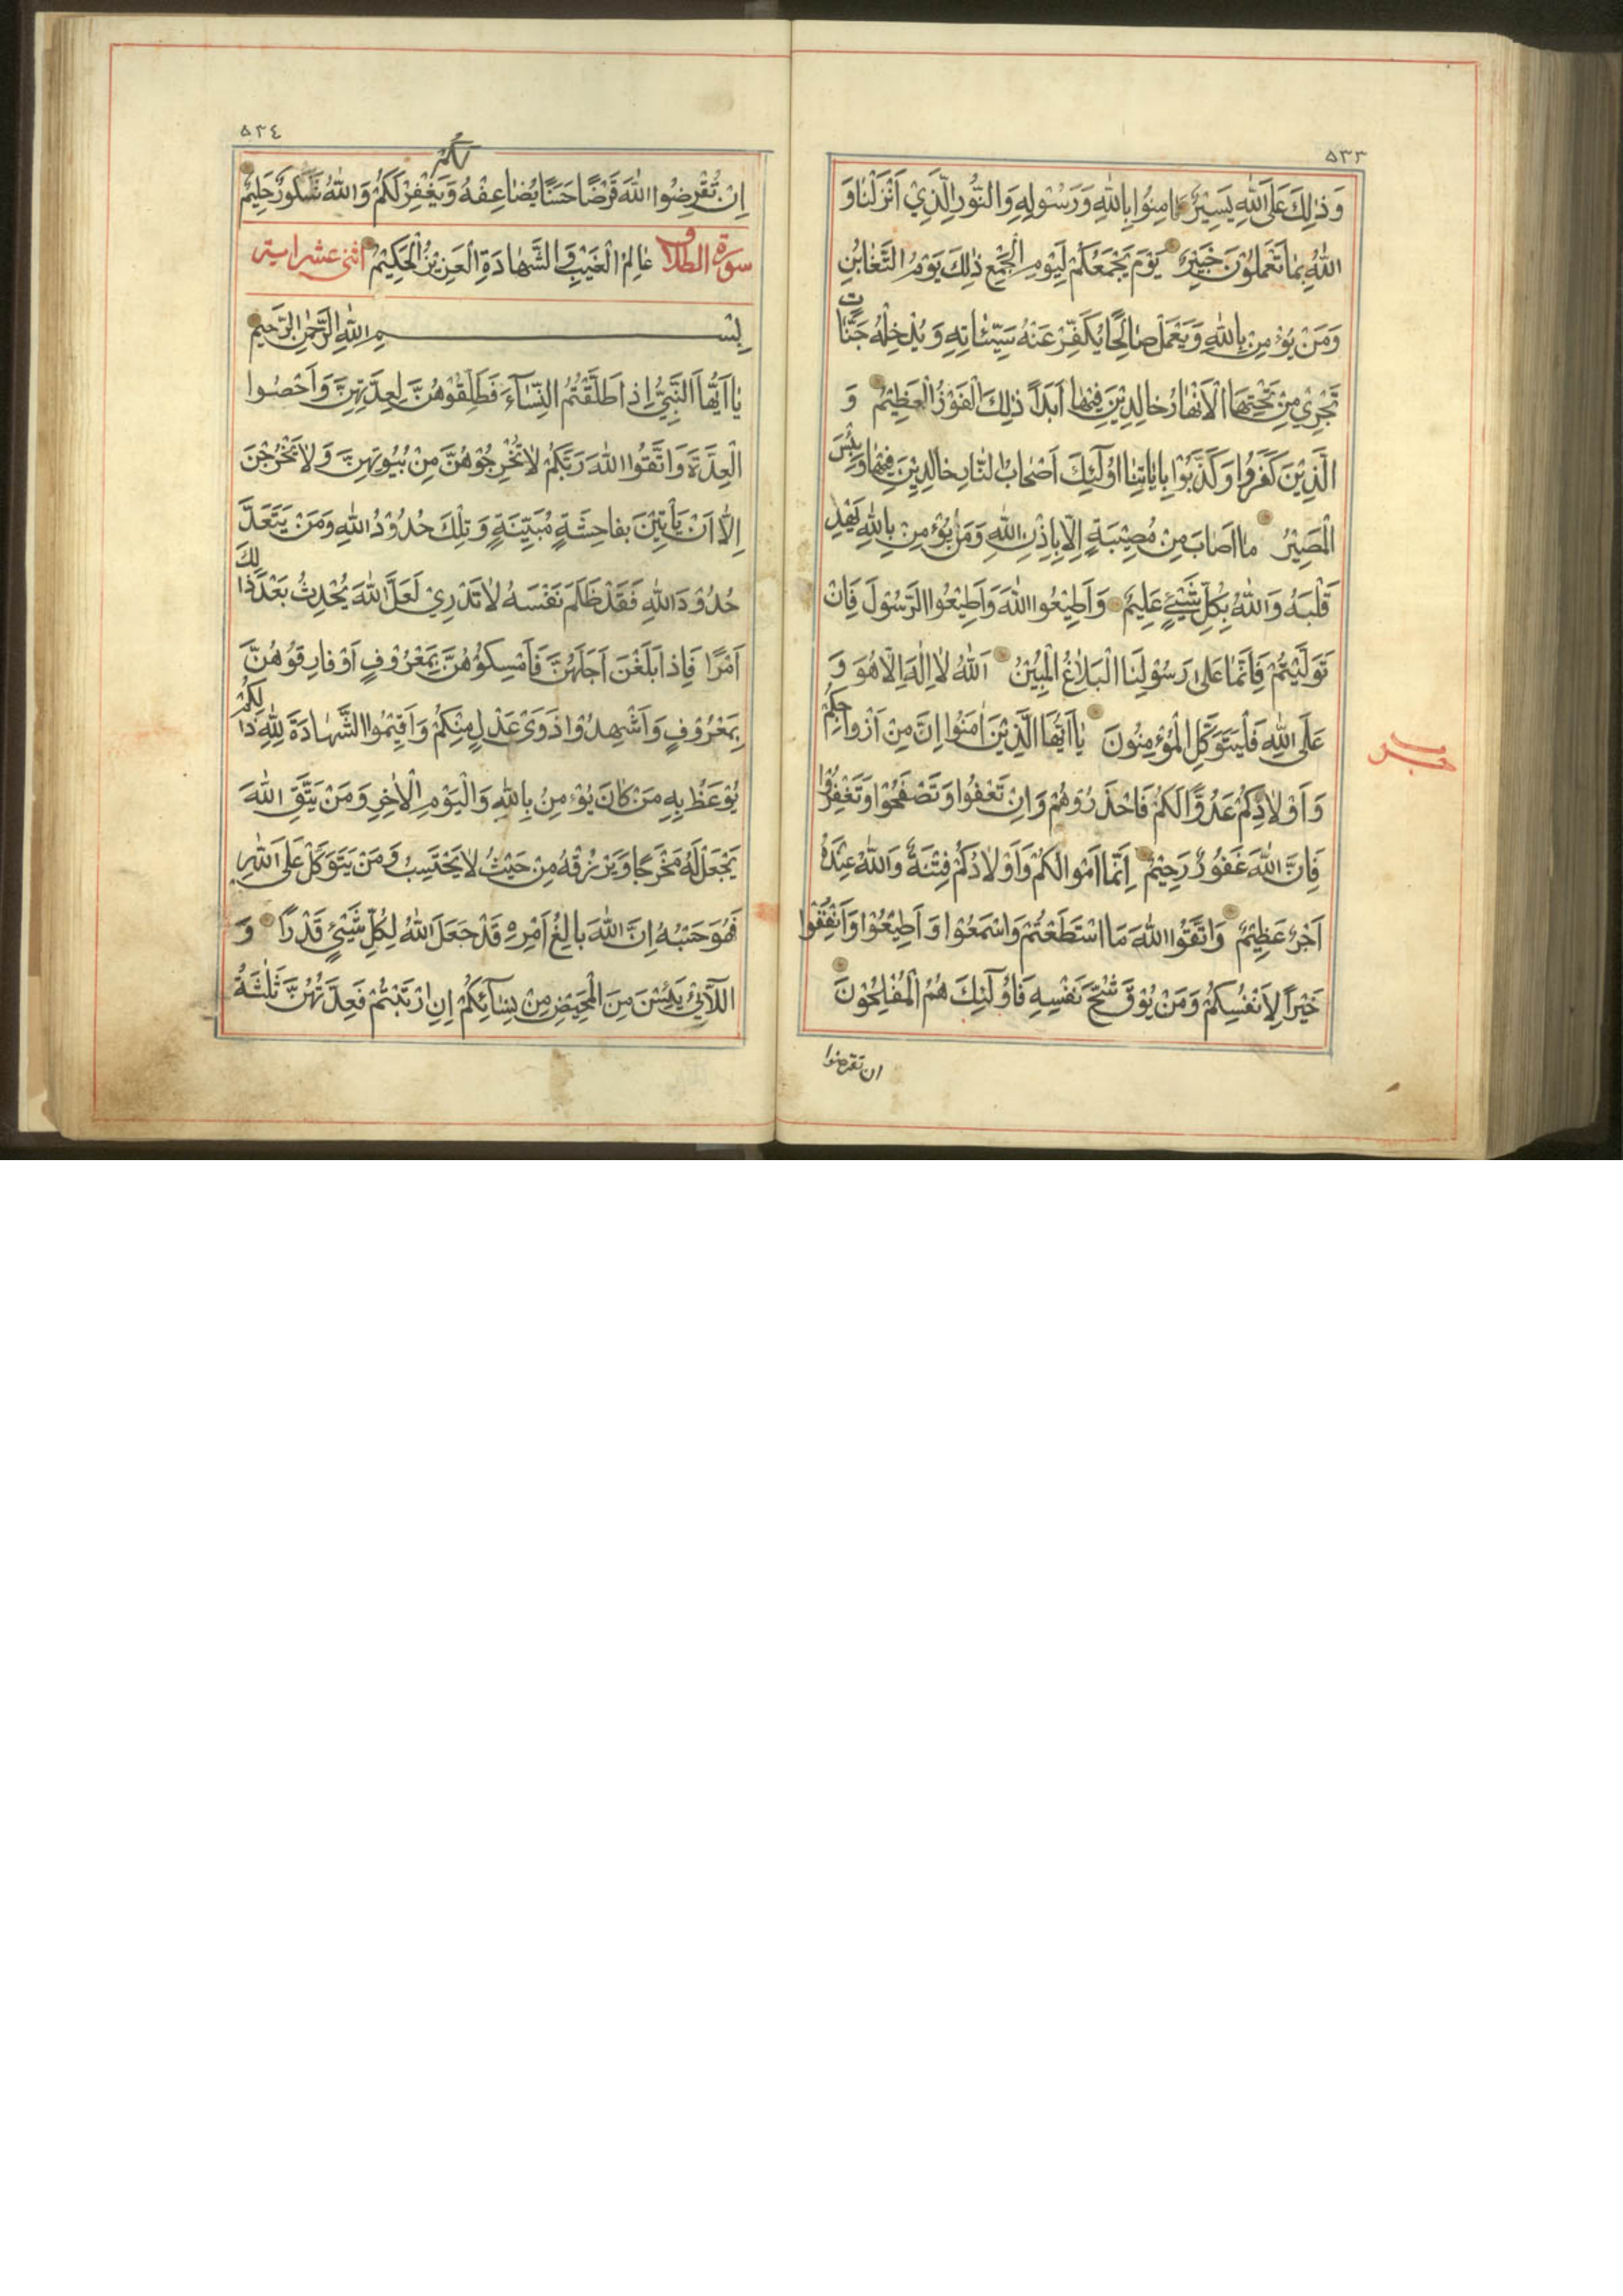 ٥٣٣
وَذٰلِكَ عَلَى اللّٰهِ يَسِيْرٌ فَاٰمِنُوْا بِاللّٰهِ وَرَسُوْلِهِ وَالنُّورِ الَّذِيْ اَنْزَلْنٰا وَ
اللّٰهُ بِمٰا تَعْمَلُوْنَ خَبِيْرٌ يَوْمَ يَجْمَعُكُمْ لِيَوْمِ الْجَمْعِ ذٰلِكَ يَوْمُ التَّغٰابُنِ
وَمَنْ يُؤْمِنْ بِاللّٰهِ وَيَعْمَلْ صٰالِحًا يُكَفِّرْ عَنْهُ سَيِّئٰاتِهِ وَيُدْخِلْهُ جَنّٰاتٍ
تَجْرِيْ مِنْ تَحْتِهَا الْاَنْهٰارُ خٰالِدِيْنَ فِيْهٰا اَبَدًا ذٰلِكَ الْفَوْزُ الْعَظِيْمُ وَ
الَّذِيْنَ كَفَرُوا وَكَذَّبُوْا بِاٰيٰاتِنٰا اُولٰٓئِكَ اَصْحٰابُ النّٰارِ خٰالِدِيْنَ فِيْهٰا وَبِئْسَ
الْمَصِيْرُ مٰا اَصٰابَ مِنْ مُصِيْبَةٍ اِلّٰا بِاِذْنِ اللّٰهِ وَمَنْ يُؤْمِنْ بِاللّٰهِ يَهْدِ
قَلْبَهُ وَاللّٰهُ بِكُلِّ شَيْئٍ عَلِيمٌ وَاَطِيْعُوا اللّٰهَ وَاَطِيْعُوا الرَّسُوْلَ فَاِنْ
تَوَلَّيْتُمْ فَاِنَّمٰا عَلٰى رَسُوْلِنَا الْبَلٰاغُ الْمُبِيْنُ اَللّٰهُ لٰا اِلٰهَ اِلّٰا هُوَ وَ
عَلَى اللّٰهِ فَلْيَتَوَكَّلِ الْمُؤْمِنُونَ يٰا اَيُّهَا الَّذِيْنَ اٰمَنُوْا اِنَّ مِنْ اَزْوٰاجِكُمْ
وَاَوْلٰادِكُمْ عَدُوًّا لَكُمْ فَاحْذَرُوْهُمْ وَاِنْ تَعْفُوْا وَتَصْفَحُوْا وَتَغْفِرُوْا
فَاِنَّ اللّٰهَ غَفُوْرٌ رَحِيْمٌ اِنَّمٰا اَمْوٰالُكُمْ وَاَوْلٰادُكُمْ فِتْنَةٌ وَاللّٰهُ عِنْدَهُ
اَجْرٌ عَظِيْمٌ وَاتَّقُوْا اللّٰهَ مَا اسْتَطَعْتُمْ وَاسْمَعُوْا وَاَطِيْعُوْا وَاَنْفِقُوْا
خَيْرًا لِاَنْفُسِكُمْ وَمَنْ يُوْقَ شُحَّ نَفْسِهِ فَاُولٰٓئِكَ هُمُ الْمُفْلِحُوْنَ
ان تقرضوا
٥٣٤
اِنْ تُقْرِضُوا اللّٰهَ قَرْضًا حَسَنًا يُضٰاعِفْهُ لَكُمْ وَيَغْفِرْ لَكُمْ وَاللّٰهُ شَكُورٌ حَلِيْمٌ
سورة الطلاق عٰالِمُ الْغَيْبِ وَالشَّهٰادَةِ الْعَزِيْزُ الْحَكِيْمُ اثنى عشر اية
بِسْمِ اللّٰهِ الرَّحْمٰنِ الرَّحِيمِ
يٰا اَيُّهَا النَّبِيُّ اِذٰا طَلَّقْتُمُ النِّسٰآءَ فَطَلِّقُوْهُنَّ لِعِدَّتِهِنَّ وَاَحْصُوا
الْعِدَّةَ وَاتَّقُوا اللّٰهَ رَبَّكُمْ لٰا تُخْرِجُوْهُنَّ مِنْ بُيُوتِهِنَّ وَلٰا يَخْرُجْنَ
اِلّٰا اَنْ يَأْتِيْنَ بِفٰاحِشَةٍ مُبَيِّنَةٍ وَتِلْكَ حُدُوْدُ اللّٰهِ وَمَنْ يَتَعَدَّ
حُدُوْدَ اللّٰهِ فَقَدْ ظَلَمَ نَفْسَهُ لٰا تَدْرِيْ لَعَلَّ اللّٰهَ يُحْدِثُ بَعْدَ ذٰلِكَ
اَمْرًا فَاِذٰا بَلَغْنَ اَجَلَهُنَّ فَاَمْسِكُوْهُنَّ بِمَعْرُوْفٍ اَوْ فٰارِقُوْهُنَّ
بِمَعْرُوْفٍ وَاَشْهِدُوْا ذَوَيْ عَدْلٍ مِنْكُمْ وَاَقِيْمُوا الشَّهٰادَةَ لِلّٰهِ ذٰلِكُمْ
يُوْعَظُ بِهِ مَنْ كٰانَ يُؤْمِنُ بِاللّٰهِ وَالْيَوْمِ الْاٰخِرِ وَمَنْ يَتَّقِ اللّٰهَ
يَجْعَلْ لَهُ مَخْرَجًا وَيَرْزُقْهُ مِنْ حَيْثُ لٰا يَحْتَسِبُ وَمَنْ يَتَوَكَّلْ عَلَى اللّٰهِ
فَهُوَ حَسْبُهُ اِنَّ اللّٰهَ بٰالِغُ اَمْرِهِ قَدْ جَعَلَ اللّٰهُ لِكُلِّ شَيْئٍ قَدْرًا وَ
اللّٰآئِيْ يَئِسْنَ مِنَ الْمَحِيْضِ مِنْ نِسٰآئِكُمْ اِنِ ارْتَبْتُمْ فَعِدَّتُهُنَّ ثَلٰثَةُ